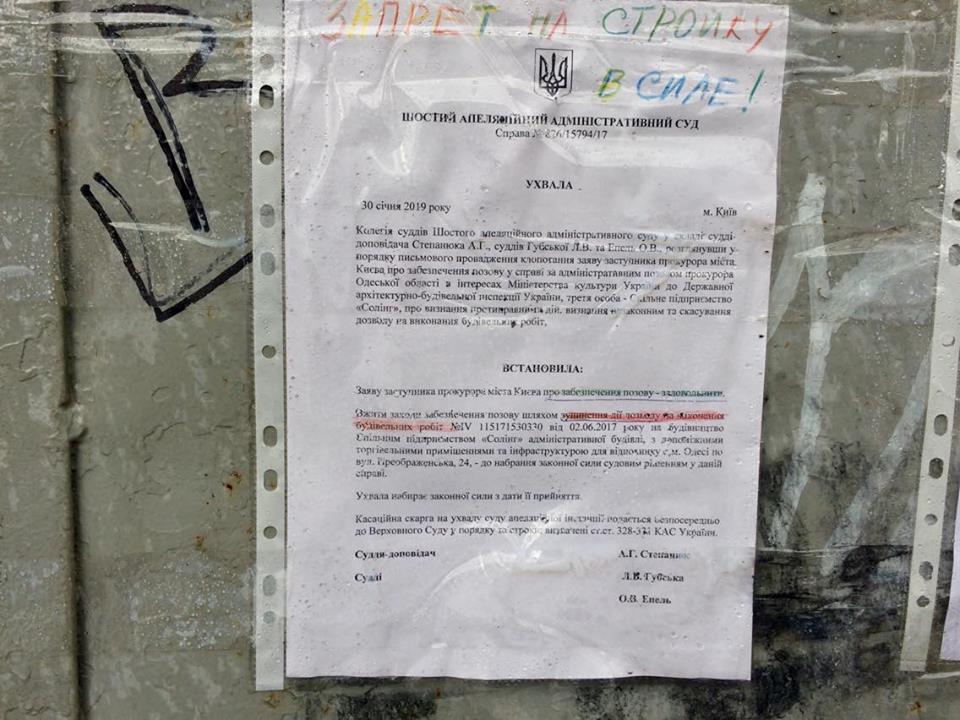 ЗАПРЕТ НА СТРОЙКУ
В СИЛЕ!
ШОСТИЙ АПЕЛЯЦІЙНИЙ АДМІНІСТРАТИВНИЙ СУД
Справа № 826/15794/17
УХВАЛА
30 січня 2019 року м. Київ
Колегія суддів Шостого апеляційного адміністративного суду у складі судді-
доповідача Степанюка А.Г., суддів Губської Л.В. та Епель О.В., розглянувши у
порядку письмового провадження клопотання заяву заступника прокурора міста
Києва про забезпечення позову у справі за адміністративним позовом прокурора
Одеської області в інтересах Міністерства культури України до Державної
архітектурно-будівельної інспекції України, третя особа - Спільне підприємство
«Солінг», про визнання протиправними дій, визнання незаконним та скасування
дозволу на виконання будівельних робіт,
ВСТАНОВИЛА:
Заяву заступника прокурора міста Києва про забезпечення позову - задовольнити.
Вжити заходи забезпечення позову шляхом зупинення дії дозволу на виконання
будівельних робіт №IV 115171530330 від 02.06.2017 року на будівництво
Спільним підприємством «Солінг» адміністративної будівлі, з допоміжними
торгівельними приміщеннями та інфраструктурою для відпочинку в м. Одесі по
вул. Преображенська, 24, - до набрання законної сили судовим рішенням у даній
справі.
Ухвала набирає законної сили з дати її прийняття.
Касаційна скарга на ухвалу суду апеляційної інстанції подається безпосередньо
до Верховного Суду у порядку та строки, визначені ст.ст. 328-331 КАС України.
Суддя-доповідач А.Г. Степанюк
Судді Л.В. Губська
О.В. Епель